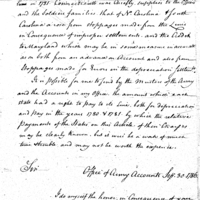 time in 1781 Connecticut was chiefly supplies to the Officers
and the Soldiers families that of No. Carolina & South
Carolina arose from stoppages made from the Lines
in Consequence of improper settlements, and the Debt
to Maryland which may be in some measure answerable
as both from an advance on Account and also from
Stoppages made for Errors in the depreciation settled
It is possible for me to find by the Musters of the Army
and the Accounts in my Office the amount which each
state had a right to pay to its Line, both for Depreciation
and Pay in the years 1780 & 1781 by which the relative
payments of the States on this Article of their Charges
may be clearly known, but it will be a work of much
time & trouble and may not be worth the expence.
Sir
Office of Army Accounts Sepr. 30. 1786
I do myself the honor, in Consequence of your